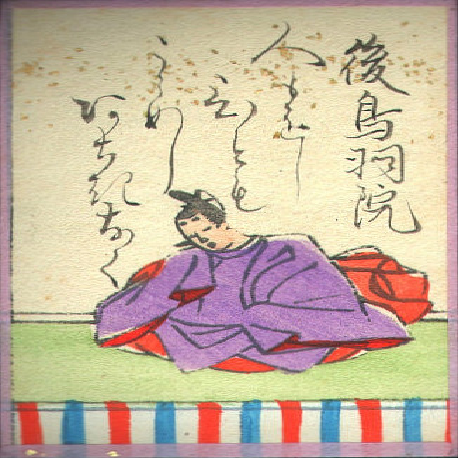 後鳥羽院
人もをし
ひとも
うらめし
あちきなく